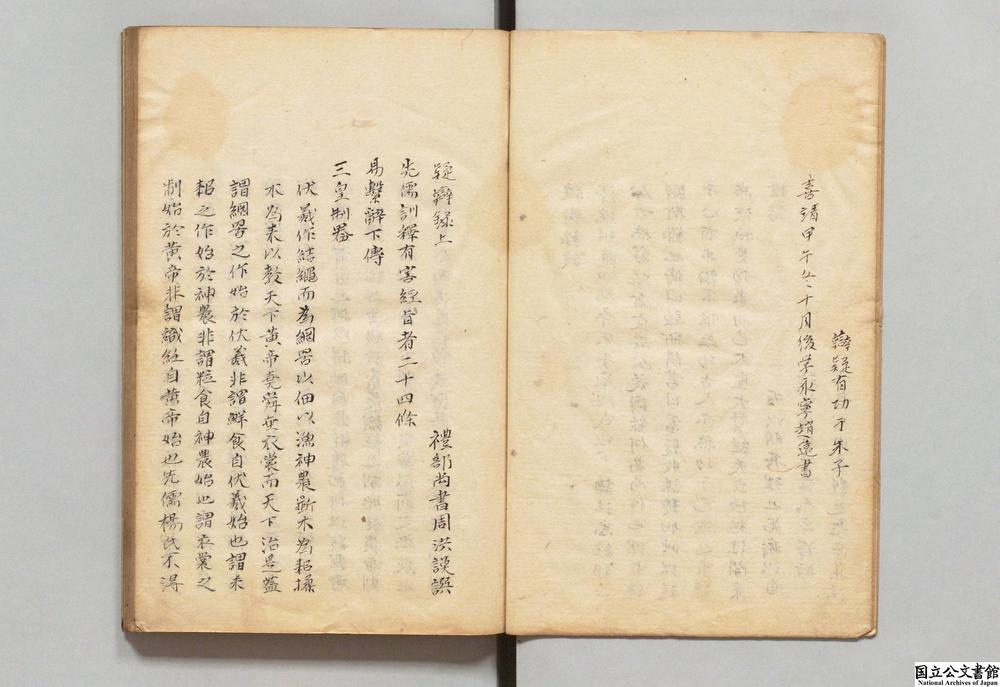 辯疑有功于朱子
嘉靖甲午冬十月後学永寧趙遠書
疑辯録上
禮部尚書周洪謨譔
先儒訓釋有害經旨者二十四條
易繫辭下傳
三皇制器
伏羲作結繩而為網罟以佃以漁神農斲木為耜揉
木為耒以教天下黄帝堯舜垂衣裳而天下治是蓋
謂網罟之作始於伏羲非謂鮮食自伏羲始也謂耒
耜之作始於神農非謂粒食自神農始也謂衣裳之
制始於黄帝非謂織紝自黄帝始也先儒楊氏不得
国立公文書館
National Archives of Japan